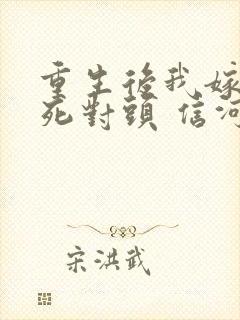 重生後我嫁
死對頭 信河
宋洪武